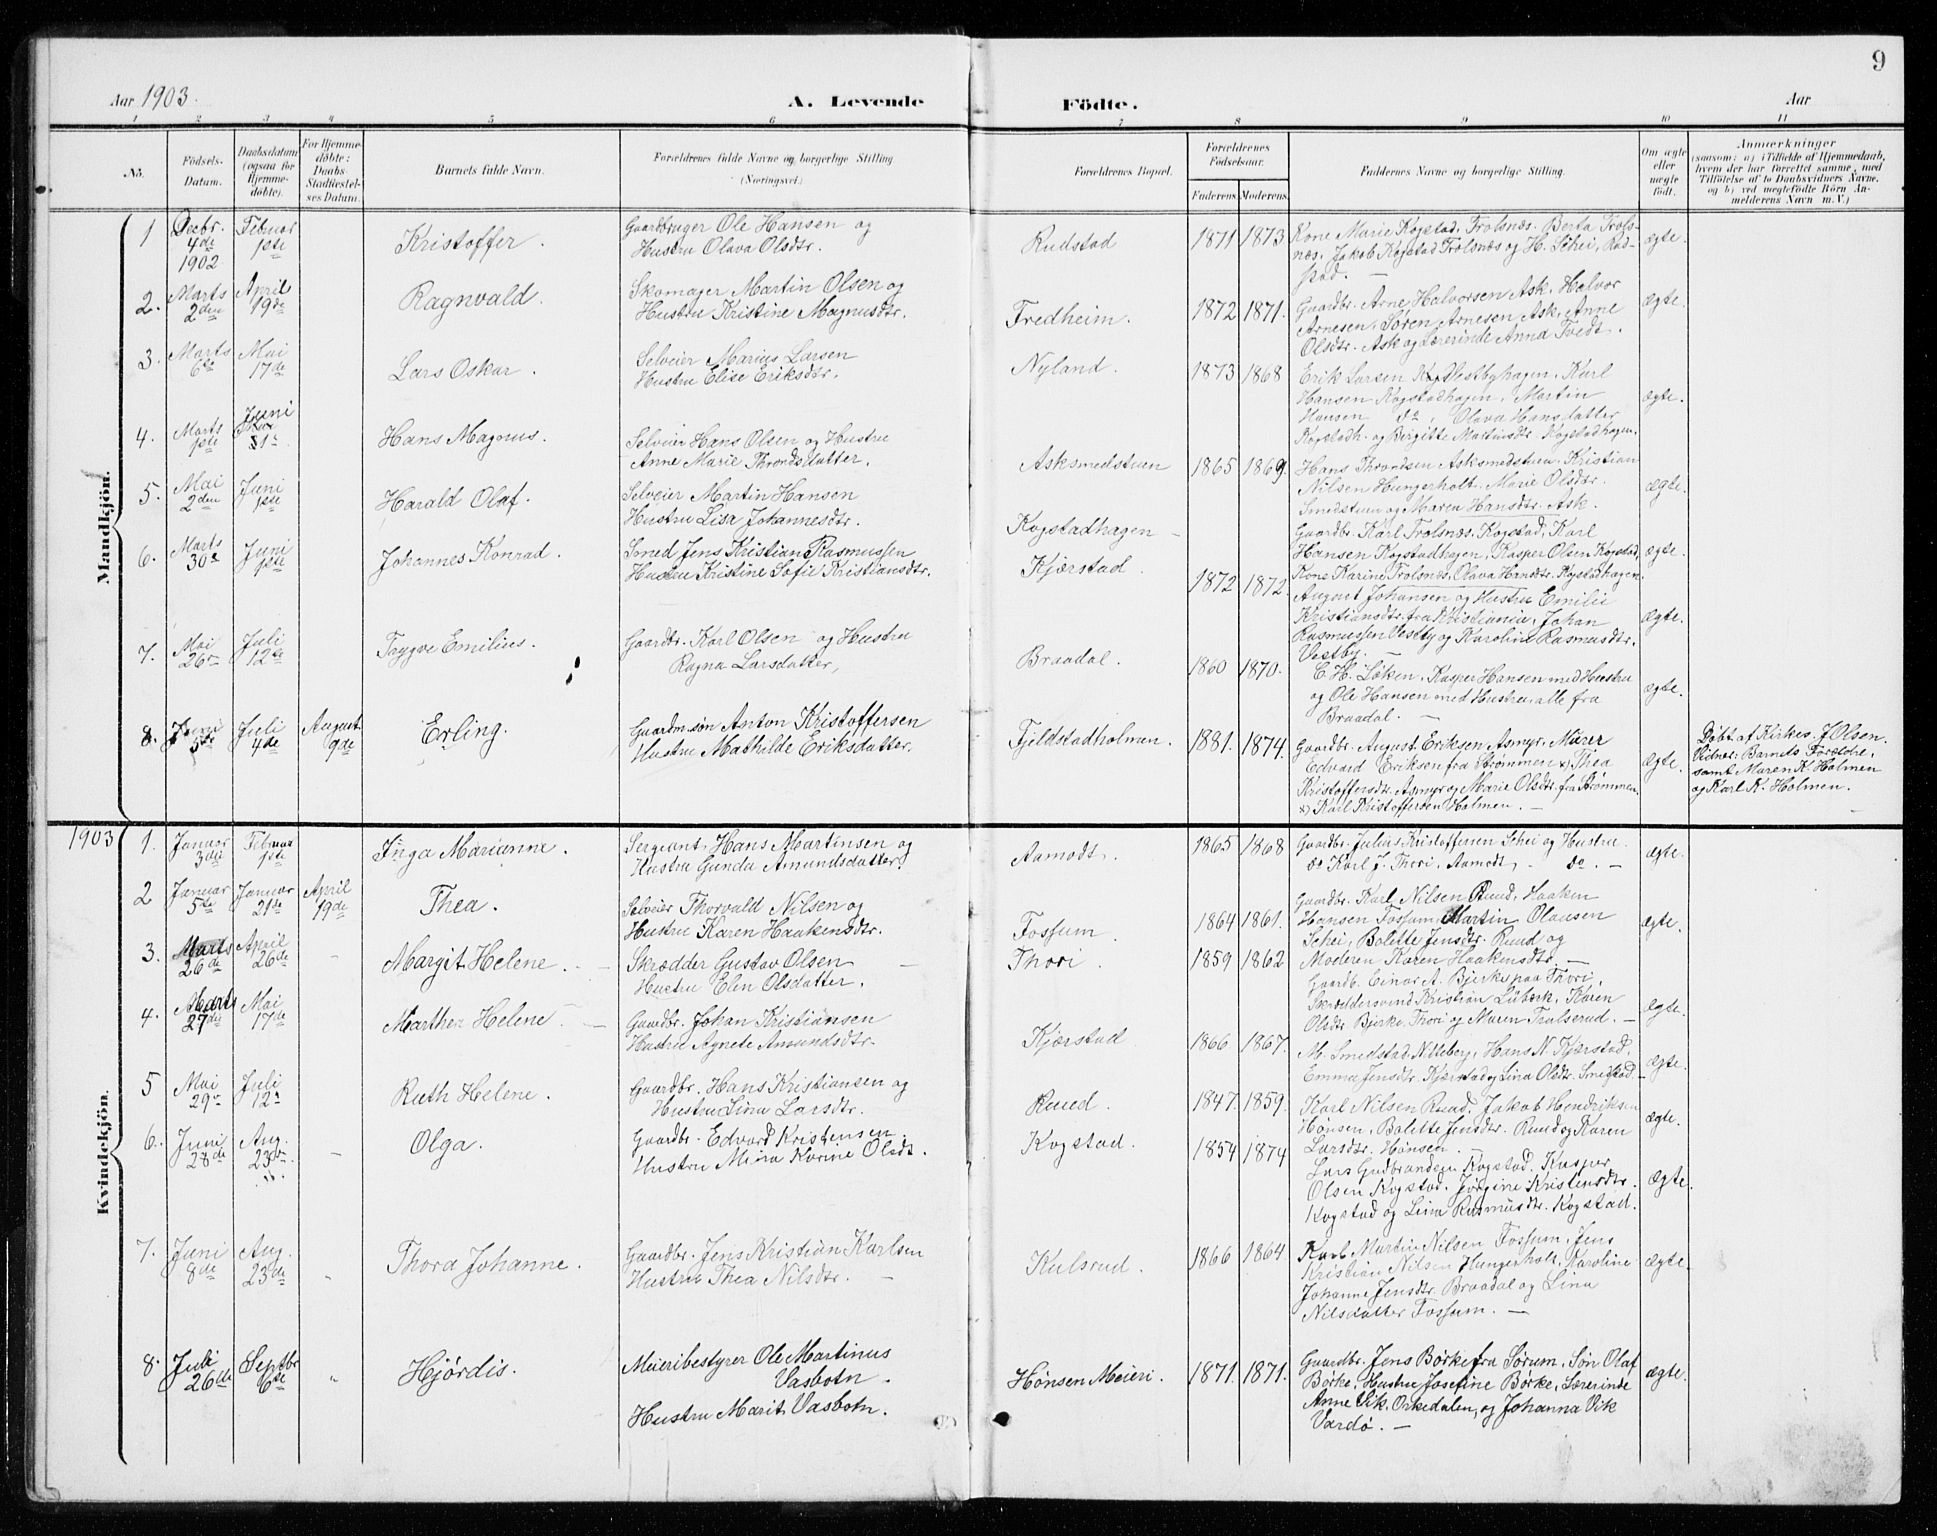 9
Aar 1903.
A. Levende Födte.
Aar
1 2 3 4 5 6 7 8 9 10 11
No.
Födsels-Datum.
Daabsdatum (ogsaa for Hjemmedøbte).
For Hjemmedøbte: Daabs-Stadfæstelses Datum.
Barnets fulde Navn.
Forældrenes fulde Navne og borgerlige Stilling (Næringsvei.)
Forældrenes Bopæl.
Forældrenes Födselsaar.
Faderens. Moderens.
Faddernes Navne og borgerlige Stilling.
Om ægte eller uægte født.
Anmærkninger
(saasom: a) i Tilfælde af Hjemmedaab, hvem der har forrettet samme, med Tilföielse af to Daabsvidners Navne, og b) ved uægtefödte Börn Anmelderens Navn m. V.)
Mandkjön.
1 Decbr. 4de 1902 Februar 1ste Kristoffer. Gaardbruger Ole Hansen og Hustru Olava Olsdtr. Rudstad 1871 1873 Kone Marie Kogstad, Trolsnæs. Berta Trolsnæs. Jakob Kogstad Trolsnæs og H. Schei, Rudstad. — ægte.
2. Marts 2den April 19de Ragnvald. Skomager Martin Olsen og Hustru Kristine Magnusdtr. Fredheim. 1872 1871. Gaardbr. Arne Halvorsen Ask. Helvor Arnesen, Søren Arnesen Ask, Anne Olsdtr. Ask og Lærerinde Anna Tvedt. ægte.
3. Marts 6te Mai 17de Lars Oskar. Selveier Marius Larsen Hustru Elise Eriksdtr. Nyland. 1873 1868 Erik Larsen Vestbyhagen, Karl Hansen Kogstadhagen, Martin Hansen do, Olava Hansdatter Kogstadh. og Birgitte Martinsdtr. Kogstadhagen. ægte.
4. Marts 1ste Juni Hans Magnus. Selveier Hans Olsen og Hustru Anne Marie Throndsdatter. Asksmedstuen 1865 1869. Hans Throndsen Asksmedstuen. Kristian Nilsen Hungerholt. Marie Olsdtr. Smedstuen og Maren Hansdtr. Ask. ægte.
5. Mai 2den Juni 1ste Harald Olaf. Selveier Martin Hansen Hustru Lisa Johannesdtr. Kogstadhagen — Gaardbr. Karl Trolsnæs, Kogstad, Karl Hansen Kogstadhagen, Kasper Olsen Kogstad, Kone Karine Trolsnæs, Olava Hansdtr. Kogstadhagen. ægte.
6. Marts 30te Juni 1ste Johannes Konrad. Smed Jens Kristian Rasmussen Hustru Kristine Sofie Kristiansdtr. Kjærstad. 1872 1872. August Johansen og Hustru Emilie Kristiansdtr. fra Kristiania, Johan Rasmussen Vestby og Karoline Rasmusdtr. Vestby. — ægte.
7. Mai 26 Juli 12te Trygve Emilius. Gaardbr. Karl Olsen og Hustru Ragna Larsdatter, Braadal. 1860 1870. C. H. Løken, Kasper Hansen med Hustru og Ole Hansen med Hustru, alle fra Braadal. — ægte.
8. Juni 5te Juli 4de August 9de Erling. Gaardm.søn Anton Kristoffersen Hustru Mathilde Eriksdatter. Fjeldstadholmen. 1881. 1874. Gaardbr. August Eriksen Asmyr, Murer Edvard Eriksen fra Strømmen x) Thea Kristoffersdtr. Asmyr og Marie Olsdtr. fra Strømmen. x) Karl Kristoffersen Holmen. — ægte. Døbt af Kirkes. J. Olsen. Vidner: Barnets Forældre, samt Maren K. Holmen og Karl K. Holmen. —
1903
Kvindekjön.
1. Januar 3die Februar 1ste Inga Marianne. Sergeant Hans Martinsen og Hustru Gunda Amundsdatter. Aamodt. 1865 1868 Gaardbr. Julius Kristoffersen Schei og Hustru. do Karl J. Thori, Aamodt, — do. — ægte.
2 Januar 5te Januar 21de April 19de Thea. Selveier Thorvald Nilsen og Hustru Karen Haakensdtr. Fossum. 1864 1861. Gaardbr. Karl Nilsen Ruud, Haaken Hansen Fossum, Martin Olausen Schei, Bolette Jensdtr. Ruud og Moderen Karen Haakensdtr. — ægte.
3. Marts 26de April 26de Margit Helene. — Skrædder Gustav Olsen — Hustru Elen Olsdatter. Thori. 1859 1862 Gaardb. Einar A. Bjerke paa Thori, Skræddersvend Kristian Lübeck, Karen Olsdtr Bjerke, Thori og Maren Trulserud. — Ægte.
4. Marts 27de Mai 17de Marthea Helene. — Gaardbr. Johan Kristiansen Hustru Agnete Amundsdtr. Kjærstad 1866 1867. M. Smedstad Nitteberg, Hans N. Kjærstad, Emma Jensdtr. Kjærstad og Lina Olsdtr. Smedstad. — Ægte.
5 Mai 29 Juli 12te Ruth Helene. Gaardbr. Hans Kristiansen og Hustru Lina Larsdtr. Ruud. 1847. 1859. Karl Nilsen Ruud, Jakob Hendriksen Hønsen, Bolette Jensdtr. Ruud og Karen Larsdtr. Hønsen. — ægte.
6. Juni 28de Aug. 23de Olga. Gaardbr. Edvard Kristensen. Hustru Mina Karine Olsdt. Kogstad. 1854 1874 Lars Gudbrandsen Kogstad. Kasper Olsen Kogstad. Jørgine Kristensdtr. Kogstad og Lina Rasmusdtr. Kogstad. Ægte.
7. Juni 8de Aug. 23de Thora Johanne. Gaardbr. Jens Kristian Karlsen Hustru Thea Nilsdtr. — Kulsrud. 1866 1864 Karl Martin Nilsen Fossum, Jens Kristian Nilsen Hungerholt, Karoline Johanne Jensdtr. Braadal og Lina Nilsdatter Fossum. — ægte.
8. Juli 26de Septbr 6te Hjørdis. Meieribestyrer Ole Martinus Vasbotn. Hustru Marit Vasbotn. Hønsen Meieri. 1871. 1871. Gaardbr. Jens Børke fra Sørum, Søn Olaf Børke, Hustru Josefine Børke, Lærerinde Anne Vik, Orkedalen, og Johanna Vik Vardø. — ægte.